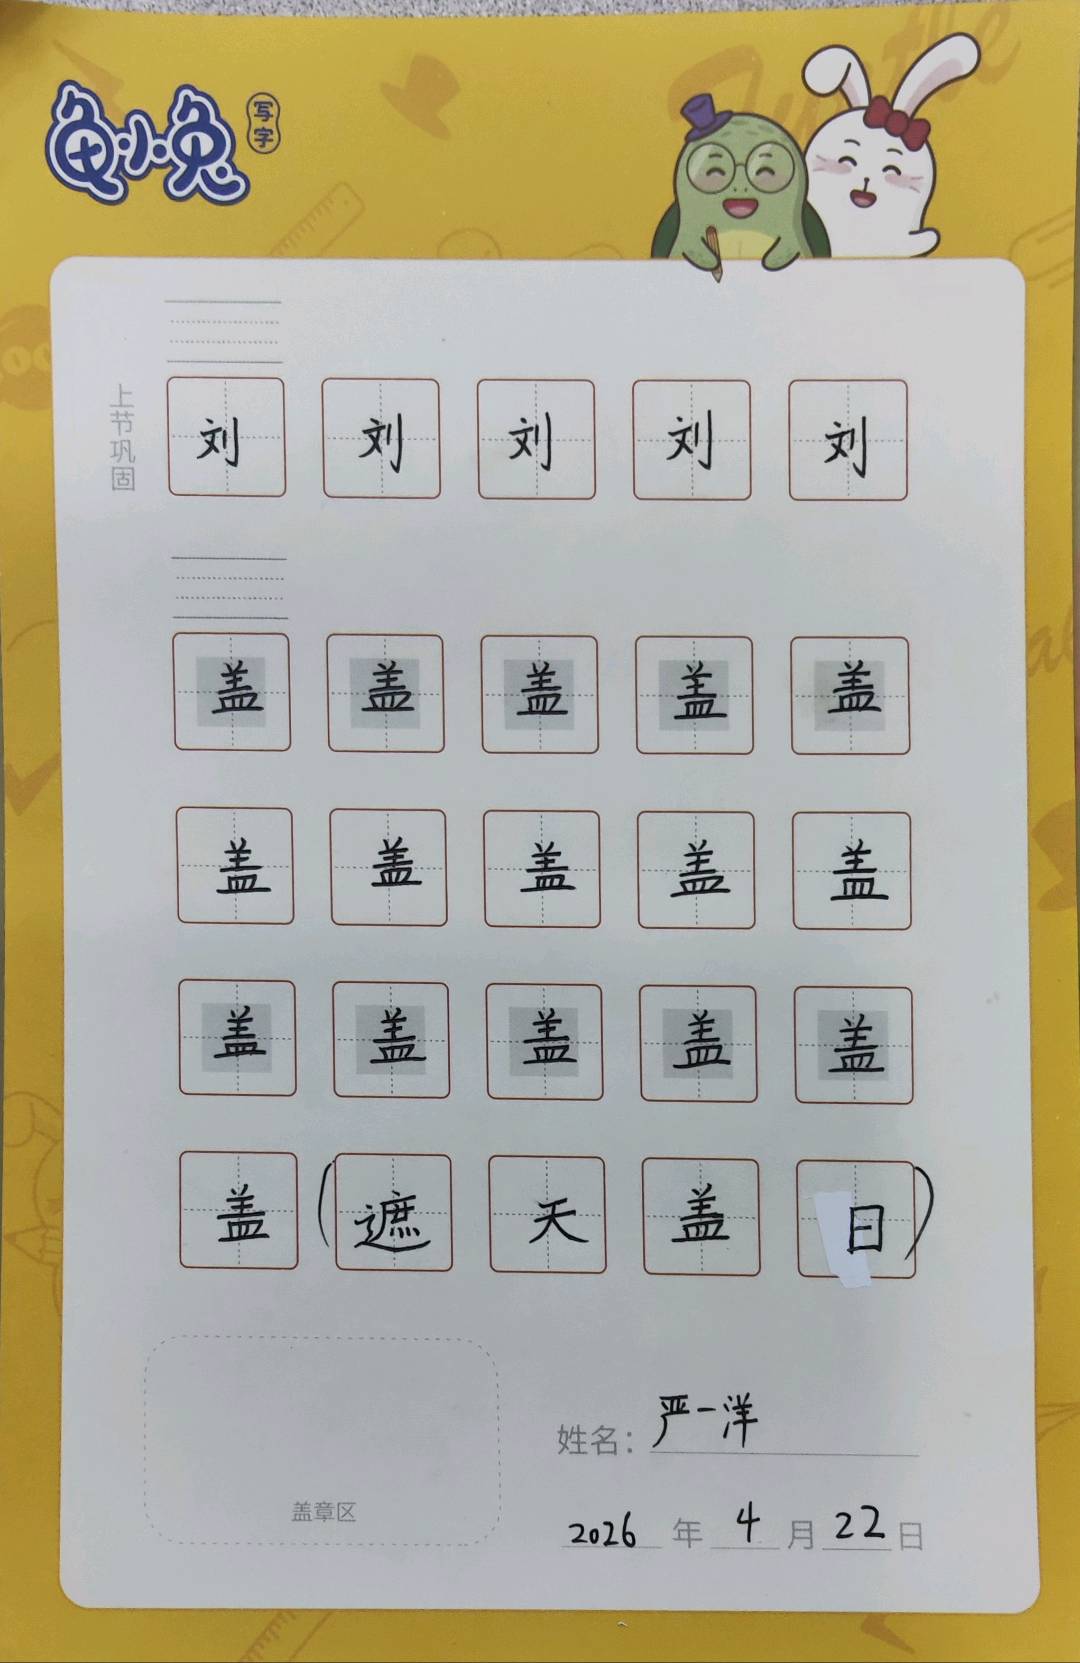 龟小兔 写字
上节巩固
刘 刘 刘 刘 刘
盖 盖 盖 盖 盖
盖 盖 盖 盖 盖
盖 盖 盖 盖 盖
盖 (遮 天 盖 日)
姓名: 严一洋
盖章区
2026 年 4 月 22 日